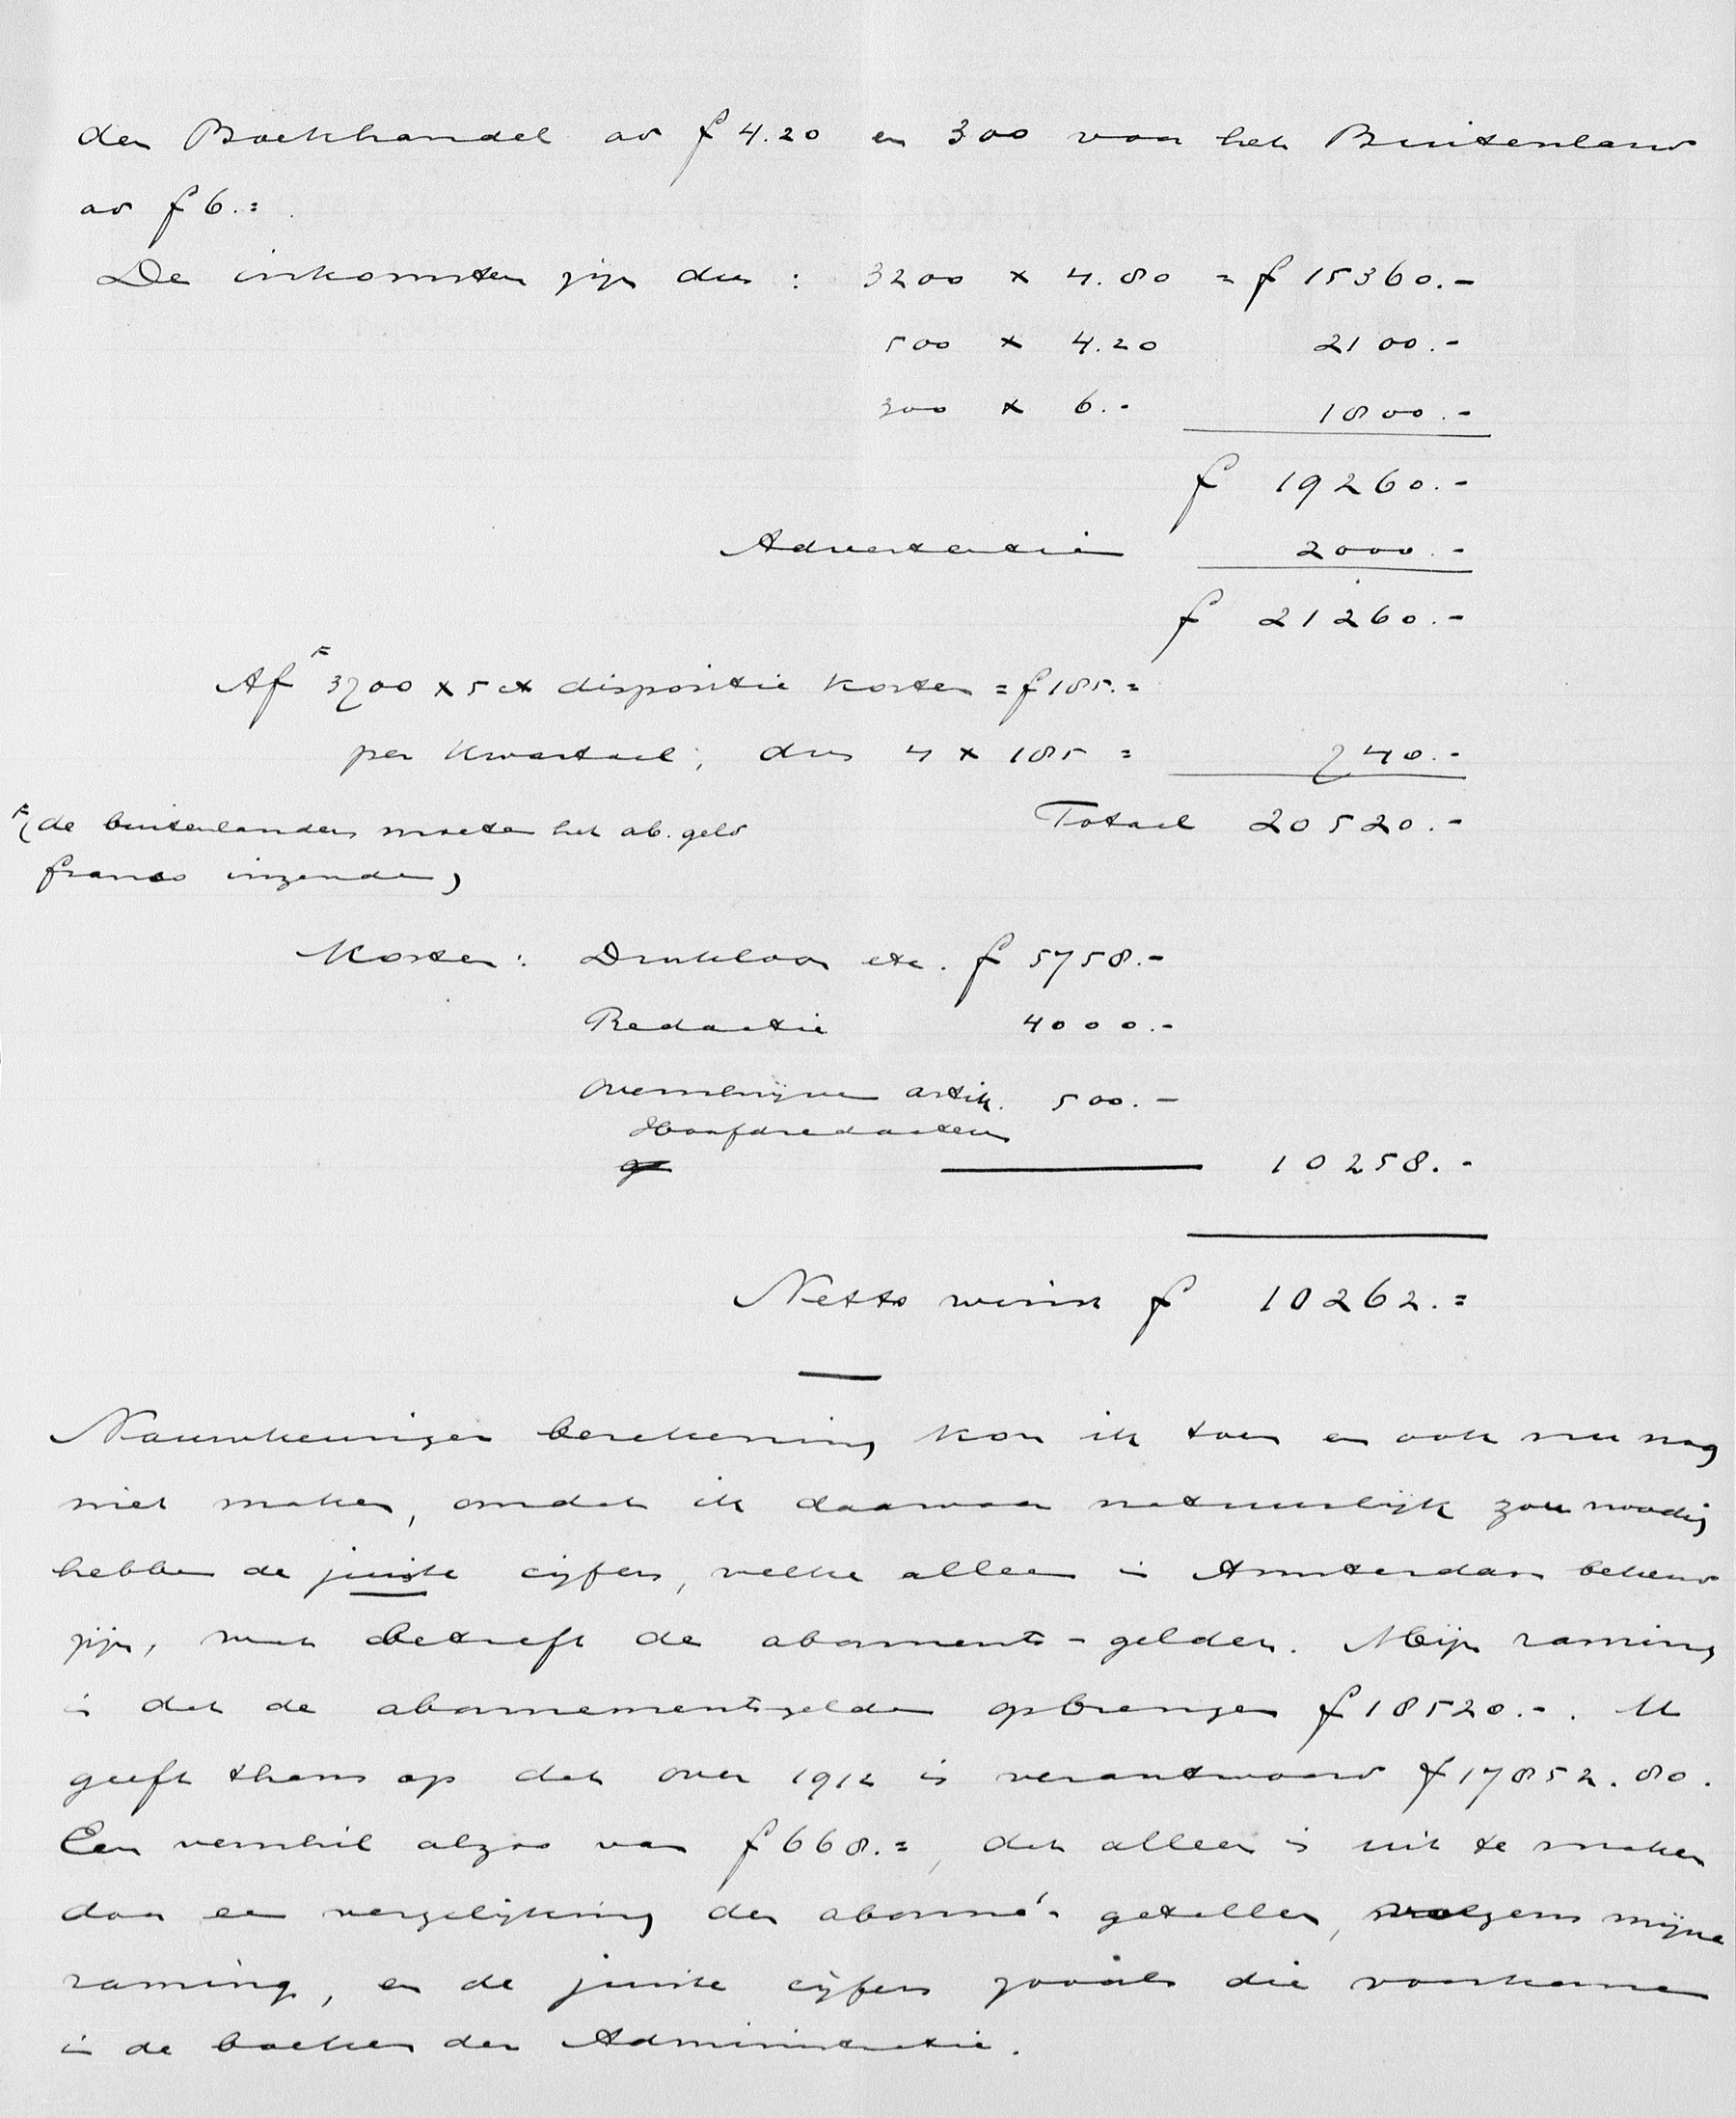 den Boekhandel ad f 4.20 en 300 voor het Buitenland
ad f 6.=
De inkomsten zijn dus : 3200 x 4.80 = f 15360.-
500 x 4.20 2100.-
300 x 6.- 1800.-
f 19260.-
Advertentiën 2000.-
f 21260.-
Af 3700 x 5 ct dispositie kosten = f 185.=
per kwartaal; dus 4 x 185 = 740.-
(de buitenlanders moeten het ab. geld
franco inzenden)
Totaal 20520.-
Kosten: Drukloon etc. f 5758.-
Redactie 4000.-
Overschrijven artik. 500.-
Hoofdredacteur
10258.-
Netto winst f 10262.=
Nauwkeuriger berekening kon ik toen en ook nu nog
niet maken, omdat ik daarvoor natuurlijk zou noodig
hebben de juiste cijfers, welke alleen in Amsterdam bekend
zijn, wat betreft de aboments-gelden. Mijn raming
is dat de abonnementsgelden opbrengen f 18520.-. U
geeft thans op dat over 1912 is verantwoord f 17852.80.
Een verschil alzoo van f 668.=, dat alleen is uit te maken
door een vergelijking der abonné's getallen, volgens mijne
raming, en de juiste cijfers zooals die voorkomen
in de boeken der Administratie.